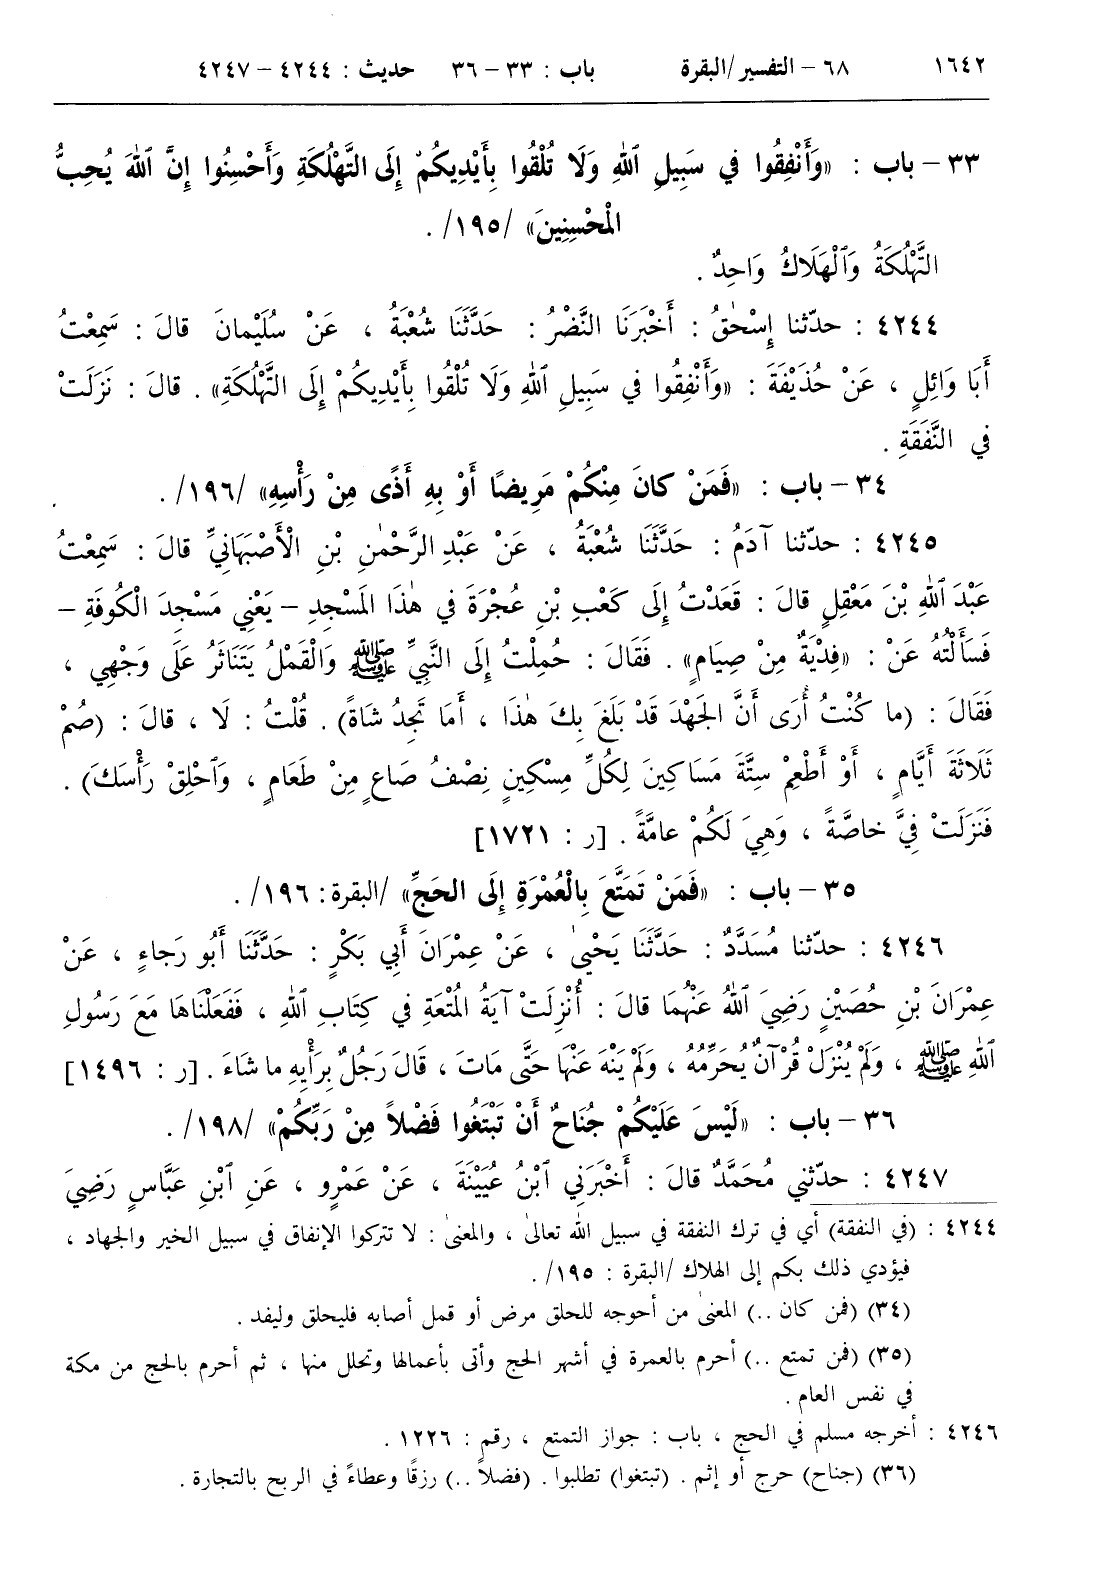 ١٦٤٢ ٦٨ – التفسير/البقرة باب : ٣٣ – ٣٦ حديث : ٤٢٤٤ – ٤٢٤٧
٣٣ – باب : «وَأَنْفِقُوا في سَبِيلِ ٱللهِ وَلَا تُلْقُوا بِأَيْدِيكُمْ إِلَى التَّهْلُكَةِ وَأَحْسِنُوا إِنَّ ٱللهَ يُحِبُّ
الْمُحْسِنِينَ» /١٩٥/ .
التَّهْلُكَةُ وَٱلْهَلَاكُ وَاحِدٌ .
٤٢٤٤ : حدّثنا إِسْحٰقُ : أَخْبَرَنَا النَّضْرُ : حَدَّثَنَا شُعْبَةُ ، عَنْ سُلَيْمانَ قالَ : سَمِعْتُ
أَبَا وَائِلٍ ، عَنْ حُذَيْفَةَ : «وَأَنْفِقُوا في سَبِيلِ ٱللهِ وَلَا تُلْقُوا بِأَيْدِيكُمْ إِلَى التَّهْلُكَةِ» . قالَ : نَزَلَتْ
في النَّفَقَةِ .
٣٤ – باب : «فَمَنْ كانَ مِنْكُمْ مَرِيضًا أَوْ بِهِ أَذًى مِنْ رَأْسِهِ» /١٩٦/ .
٤٢٤٥ : حدّثنا آدَمُ : حَدَّثَنَا شُعْبَةُ ، عَنْ عَبْدِ الرَّحْمٰنِ بْنِ الْأَصْبَهَانِيِّ قالَ : سَمِعْتُ
عَبْدَ ٱللهِ بْنَ مَعْقِلٍ قالَ : قَعَدْتُ إِلَى كَعْبِ بْنِ عُجْرَةَ في هٰذَا المَسْجِدِ – يَعْنِي مَسْجِدَ الْكُوفَةِ –
فَسَأَلْتُهُ عَنْ : «فِدْيَةٌ مِنْ صِيَامٍ» . فَقَالَ : حُمِلْتُ إِلَى النَّبِيِّ ﷺ وَالْقَمْلُ يَتَنَاثَرُ عَلَى وَجْهِي ،
فَقَالَ : (ما كُنْتُ أُرَى أَنَّ الجَهْدَ قَدْ بَلَغَ بِكَ هٰذَا ، أَمَا تَجِدُ شَاةً) . قُلْتُ : لَا ، قالَ : (صُمْ
ثَلَاثَةَ أَيَّامٍ ، أَوْ أَطْعِمْ سِتَّةَ مَسَاكِينَ لِكُلِّ مِسْكِينٍ نِصْفُ صَاعٍ مِنْ طَعَامٍ ، وَٱحْلِقْ رَأْسَكَ) .
فَنَزَلَتْ فِيَّ خاصَّةً ، وَهِيَ لَكُمْ عامَّةً . [ر : ١٧٢١]
٣٥ – باب : «فَمَنْ تَمَتَّعَ بِالْعُمْرَةِ إِلَى الحَجِّ» /البقرة: ١٩٦/ .
٤٢٤٦ : حدّثنا مُسَدَّدٌ : حَدَّثَنَا يَحْيىٰ ، عَنْ عِمْرَانَ أَبِي بَكْرٍ : حَدَّثَنَا أَبُو رَجاءٍ ، عَنْ
عِمْرَانَ بْنِ حُصَيْنٍ رَضِيَ ٱللهُ عَنْهُمَا قالَ : أُنْزِلَتْ آيَةُ المُتْعَةِ في كِتَابِ ٱللهِ ، فَفَعَلْنَاهَا مَعَ رَسُولِ
ٱللهِ ﷺ ، وَلَمْ يُنْزَلْ قُرْآنٌ يُحَرِّمُهُ ، وَلَمْ يَنْهَ عَنْهَا حَتَّى مَاتَ ، قَالَ رَجُلٌ بِرَأْيِهِ ما شَاءَ . [ر : ١٤٩٦]
٣٦ – باب : «لَيْسَ عَلَيْكُمْ جُنَاحٌ أَنْ تَبْتَغُوا فَضْلاً مِنْ رَبِّكُمْ» /١٩٨/ .
٤٢٤٧ : حدّثني مُحَمَّدٌ قالَ : أَخْبَرَنِي ٱبْنُ عُيَيْنَةَ ، عَنْ عَمْرٍو ، عَنِ ٱبْنِ عَبَّاسٍ رَضِيَ
٤٢٤٤ : (في النفقة) أي في ترك النفقة في سبيل الله تعالىٰ ، والمعنىٰ : لا تتركوا الإنفاق في سبيل الخير والجهاد ،
فيؤدي ذلك بكم إلى الهلاك /البقرة : ١٩٥/ .
(٣٤) (فمن كان ..) المعنىٰ من أحوجه للحلق مرض أو قمل أصابه فليحلق وليفد .
(٣٥) (فمن تمتع ..) أحرم بالعمرة في أشهر الحج وأتى بأعمالها وتحلل منها ، ثم أحرم بالحج من مكة
في نفس العام .
٤٢٤٦ : أخرجه مسلم في الحج ، باب : جواز التمتع ، رقم : ١٢٢٦ .
(٣٦) (جناح) حرج أو إثم . (تبتغوا) تطلبوا . (فضلاً ..) رزقًا وعطاءً في الربح بالتجارة .